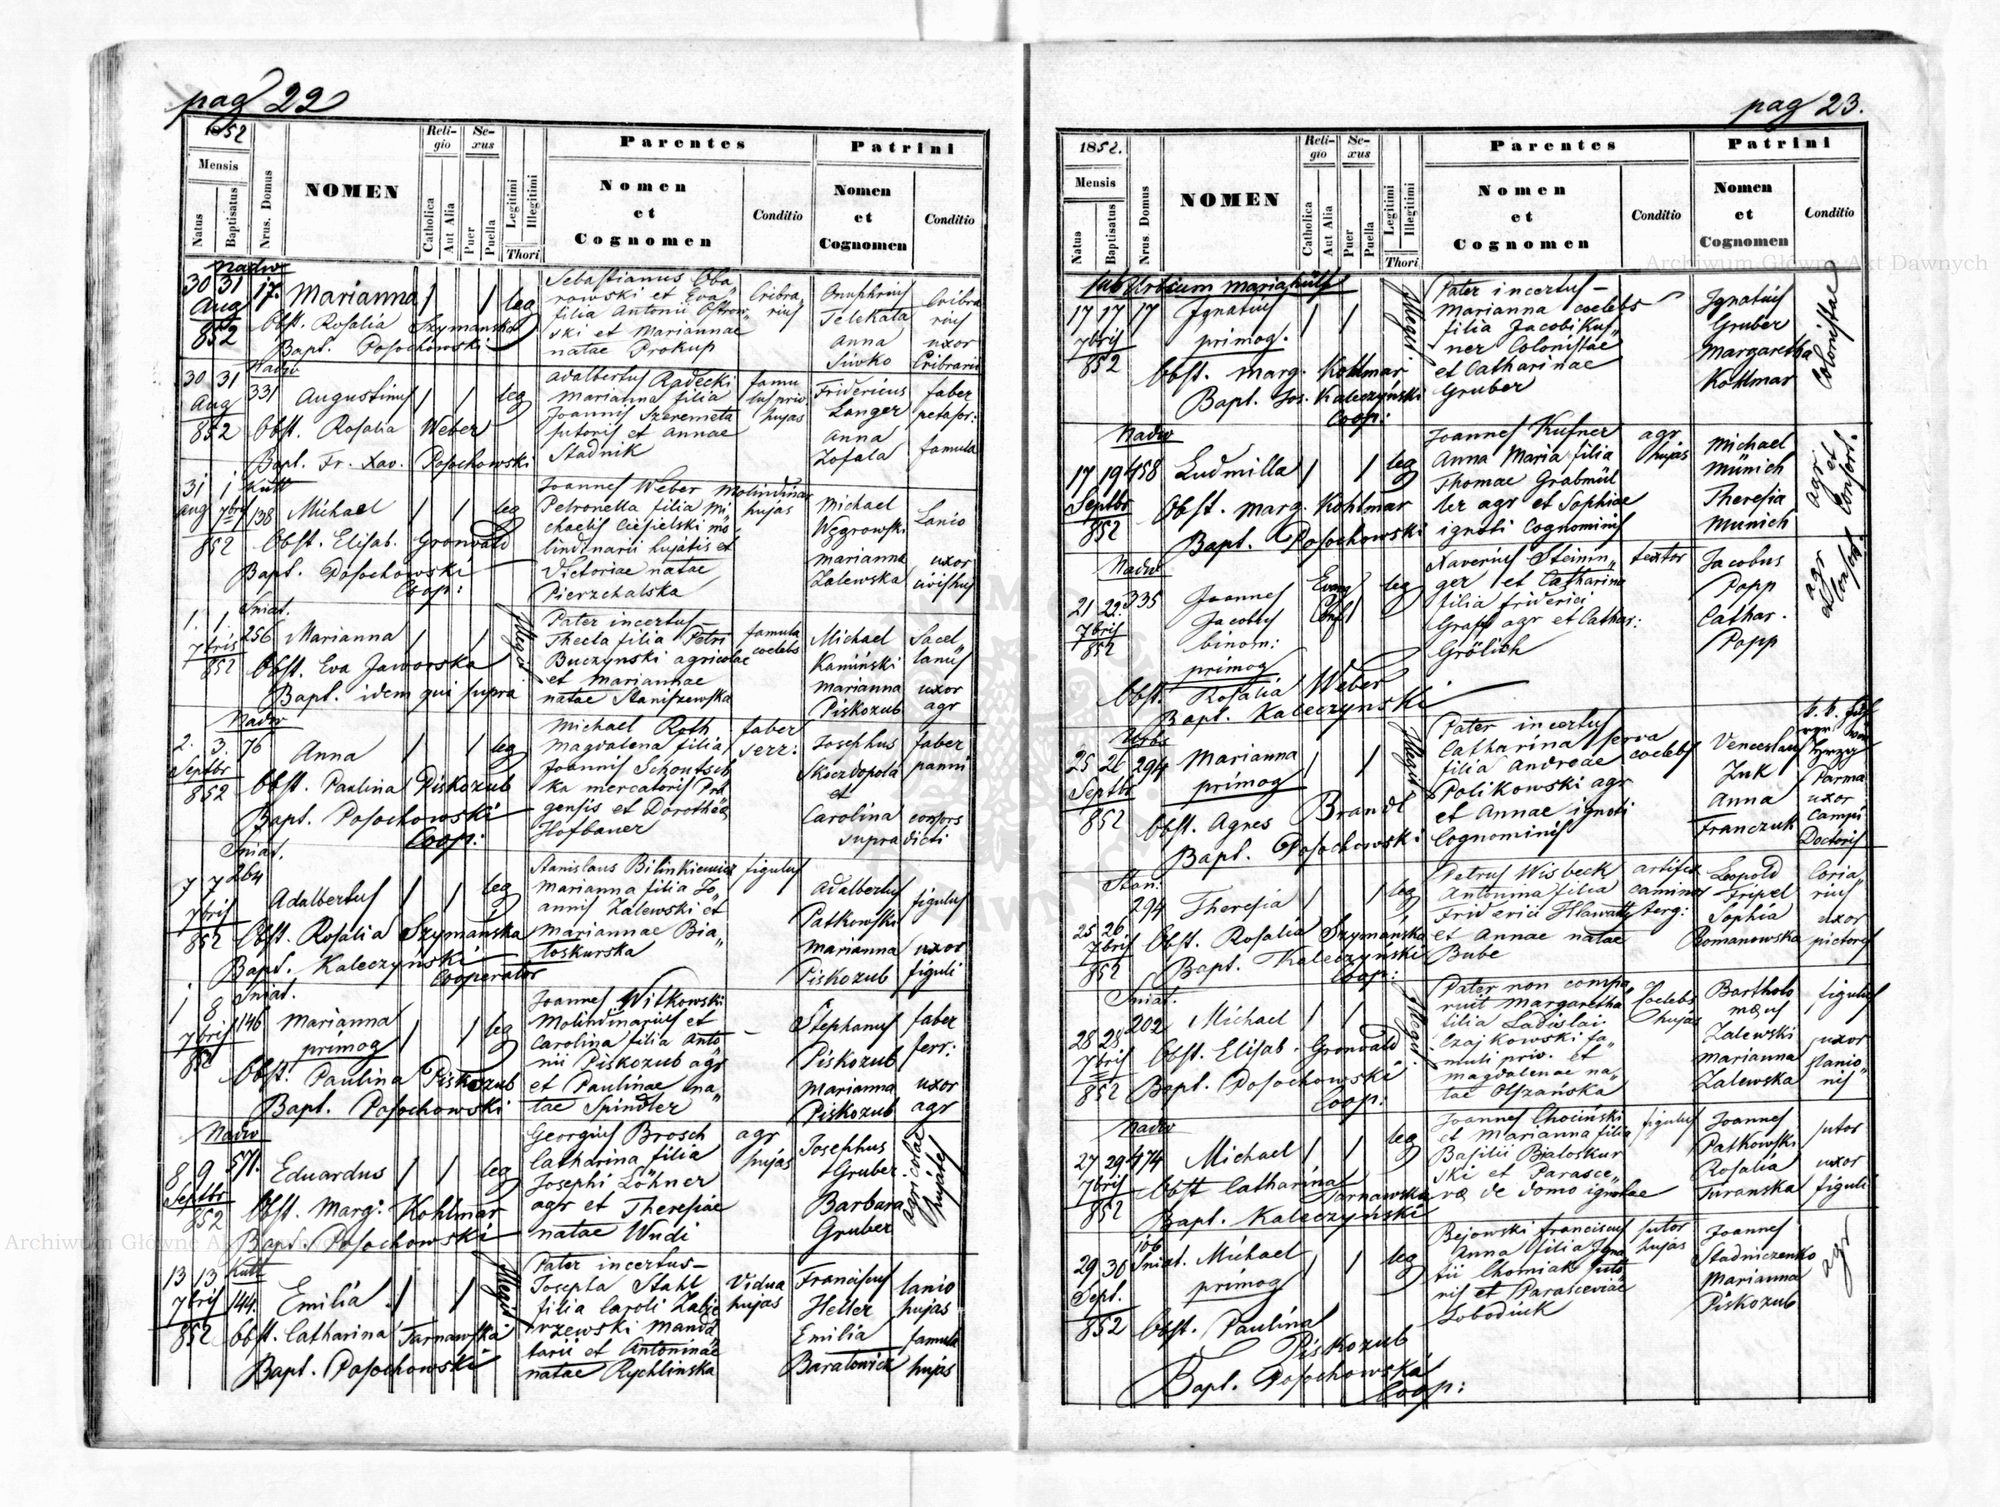 pag 22
1852
Mensis
Natus
Baptisatus
Nrus. Domus
NOMEN
Reli-
gio
Catholica
Aut Alia
Se-
xus
Puer
Puella
Legitimi
Illegitimi
Thori
Parentes
Nomen
et
Cognomen
Conditio
Patrini
Nomen
et
Cognomen
Conditio
Nadw
30 31 17. Marianna leg
Aug
852
Obst. Rosalia Szymanska
Bapt. Posochowski
Sebastianus Oba„
rowski et Eva
filia Antonii Ostrow„
ski et Mariannae
natae Prokup
Cribra
rius
Onuphrius
Telekala
Anna
Siwko
Cribra
rius
uxor
Cribrarii
Nadw
30 31 331 Augustinus leg
Aug
852
Obst. Rosalia Weber
Bapt. Fr. Xav. Posochowski
Adalbertus Radecki
Marianna filia
Joannis Szeremeta
sutoris et Annae
Stadnik
famu
lus priv.
hujas
Fridericus
Langer
Anna
Zofala
faber
petasor:
famula
Kutt
31 1 138 Michael leg
Aug 7bris
852
Obst. Elisab. Gronvald
Bapt. Posochowski
Coop:
Joannes Weber
Petronella filia Mi
chaelis Ciesielski mo„
lindinarii hujatis et
Victoriae natae
Pierzchalska
Molindinar
hujas
Michael
Węgrowski
Marianna
Zalewska
Lanio
uxor
Sniat.
1. 1. 256 Marianna Illegit
7bris
852
Obst. Eva Jaworska
Bapt. idem qui supra
Pater incertus –
Thecla filia Petri
Buczynski agricolae
et Mariannae
natae Staniszewska
famula
coelebs
Michael
Kamiński
Marianna
Piskozub
Sacel„
lanus
uxor
agr
Nadw
2. 3. 76 Anna leg
Septbr
852
Obst. Paulina Piskozub
Bapt. Posochowski
Coop:
Michael Roth
Magdalena filia
Joannis Schontsch
ka mercatoris Pra
gensis et Dorothea
Hofbauer
faber
serr:
Josephus
Skoczdopola
et
Carolina
faber
panni
consors
supradicti
Sniat.
7 7 264 Adalbertus leg
7bris
852
Obst. Rosalia Szymańska
Bapt. Kaleczyński
Cooperator
Stanislaus Bilinkiewicz
Marianna filia Jo
annis Zalewski et
Mariannae Bia„
loskurska
figulus
Adalbertus
Patkowski
Marianna
Piskozub
figulus
uxor
figuli
Sniat.
1 8 146 Marianna leg
7bris primog
852
Obst. Paulina Piskozub
Bapt. Posochowski
Joannes Witkowski
Molindinarius et
Carolina filia Anto
nii Piskozub agr
et Paulinae na„
tae Spindler
–
Stephanus
Piskozub
Marianna
Piskozub
faber
ferr:
uxor
agr
Nadw
8 9 571. Eduardus leg
Septbr
852
Obst. Marg: Kohlmar
Bapt. Posochowski
Georgius Brosch
Catharina filia
Josephi Löhner
agr et Theresiae
natae Wudi
agr
hujas
Josephus
Gruber
Barbara
Gruber
agricolae
hujates
Kutt
13 13 144. Emilia Illegit
7bris
852
Obst. Catharina Tarnawska
Bapt. Posochowski
Pater incertus –
Josepha Stahl
filia Caroli Zakje
rzewski Manda
tarii et Antoninae
natae Rychlinska
Vidua
hujas
Franciscus
Heller
Emilia
Baratowicz
lanio
hujas
famula
hujas
pag 23.
1852.
Mensis
Natus
Baptisatus
Nrus. Domus
NOMEN
Reli-
gio
Catholica
Aut Alia
Se-
xus
Puer
Puella
Legitimi
Illegitimi
Thori
Parentes
Nomen
et
Cognomen
Conditio
Patrini
Nomen
et
Cognomen
Conditio
Mariahülf
17 17 17 Ignatius Illegit.
7bris primog.
852
Obst. Marg. Kohlmar
Bapt. Jos. Kaleczyński
Coop:
Pater incertus –
Marianna coelebs
filia Jacobi Kuf„
ner Colonistae
et Catharinae
Gruber
Ignatius
Gruber
Margaretha
Kohlmar
Colonistae
Nadw
17 19 458 Ludmilla leg
Septbr
852
Obst. Marg. Kohlmar
Bapt. Posochowski
Joannes Kufner
Anna Maria filia
Thomae Grabmül
ler agr et Sophiae
ignoti Cognominis
agr
hujas
Michael
Münich
Theresia
Munich
agr
et
Consors.
Nadw
21 22. 335 Joannes Evang leg
7bris Jacobus Conf
852 binom:
primog
Obst. Rosalia Weber
Bapt. Kaleczynski
Xaverius Steinin„
ger et Catharina
filia friderici
Graff agr et Cathar:
Grölich
textor
Jacobus
Popp
Cathar.
Popp
agr
Consors.
Urbis
25 26 294 Marianna Illegit
Septbr primog
852
Obst. Agnes Brandl
Bapt. Posochowski
Pater incertus
Catharina serva
filia Andreae
Polikowski agr
et Annae ignoti
Cognominis
coelebs
Venceslaus
Zuk
Anna
Franczuk
Parma
uxor
campi
Doctoris
Stan:
25 26 294 Theresia leg
7bris
852
Obst. Rosalia Szymańska
Bapt. Kaleczyński
Coop:
Petrus Wisbeck
Antonina filia
Friderici Hlawatty
et Annae natae
Bube
artifex
caminos
terg:
Leopold
Fripel
Sophia
Romanowska
Coria„
rius
uxor
pictoris
Sniat.
28 28 202 Michael Illegit
7bris
852
Obst. Elisab. Gronvald
Bapt. Posochowski
Coop:
Pater non compa„
ruit Margaretha
filia Ladislai
Czajkowski fa„
muli priv. et
Magdalenae na„
tae Olszańska
Coelebs
hujas
Bartholo
maeus
Zalewski
Marianna
Zalewska
figulus
uxor
lanio„
nis
Nadw
27 29 474 Michael leg
7bris
852
Obst Catharina
Tarnawska
Bapt. Kaleczyński
Joannes Chociński
et Marianna filia
Basilii Bialoskur
ski et Parasce„
væ de domo ignotae
figulus
Joannes
Patkowski
Rosalia
Turanska
sutor
uxor
figuli
106
29 30 Sniat. Michael leg
Sept. primog
852
Obst. Paulina
Piskozub
Bapt. Posochowski
Coop:
Bejowski franciscus
Anna filia Igna
tii Chomiak suto
ris et Parasceviae
Sobodiuk
sutor
hujas
Joannes
Stadniczenko
Marianna
Piskozub
agr
Archiwum Główne Akt Dawnych
Archiwum Główne Akt Dawnych